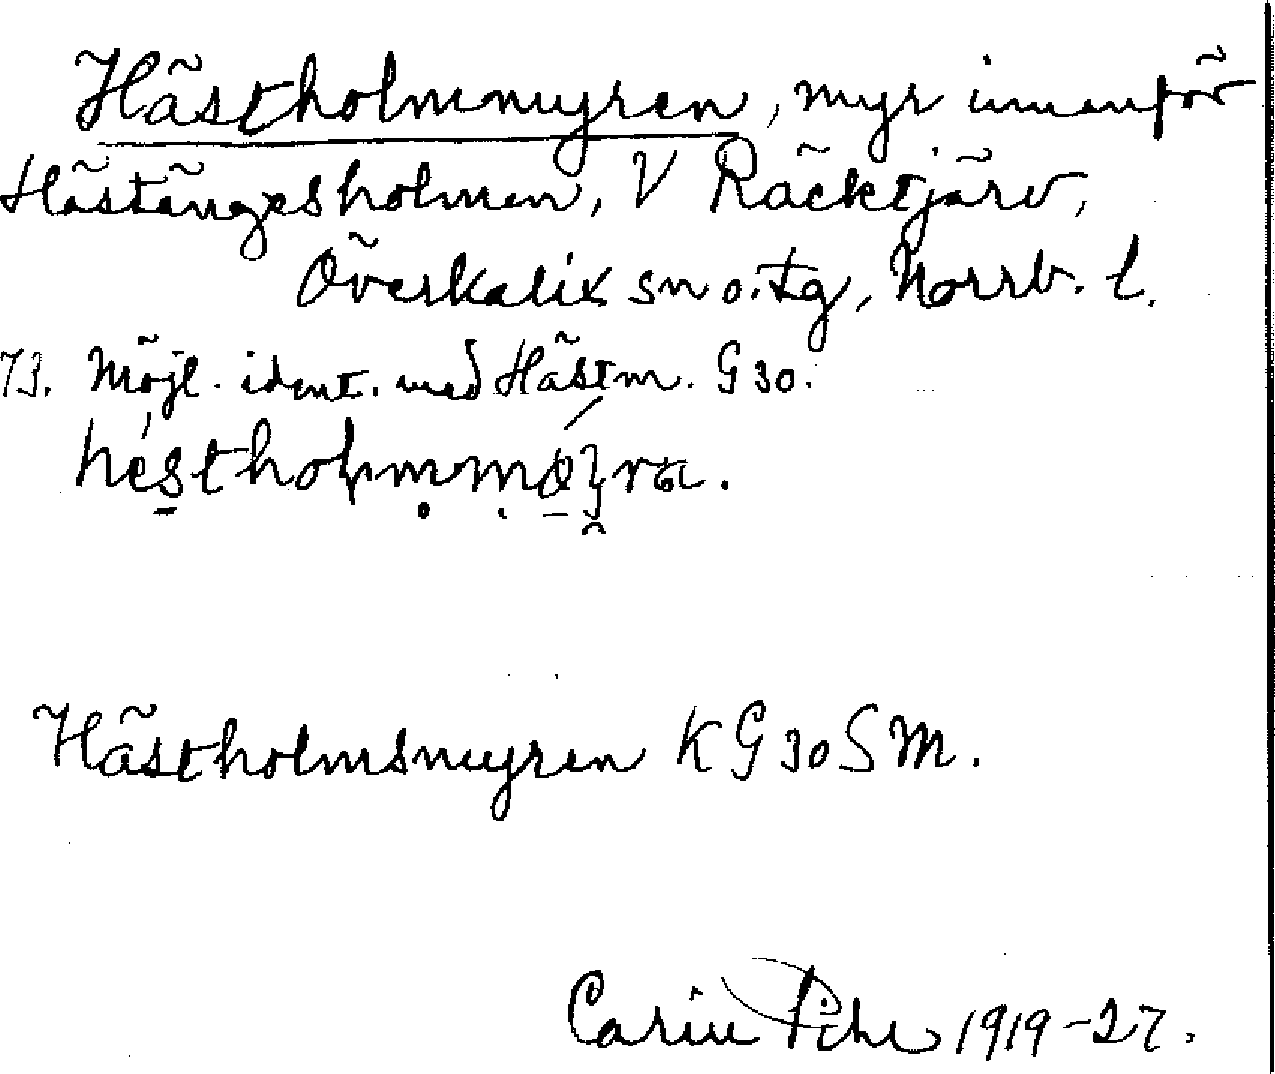 Hästholmmyren, myr innanför
Hästängesholmen, V Räcktjärv,
Överkalix sn o. tg, Norrb. l.
73. Möjl. ident. med Hästm. G 30.
Hästholmsmyren K G 30 S M.
Carin Pihl 1919-27.